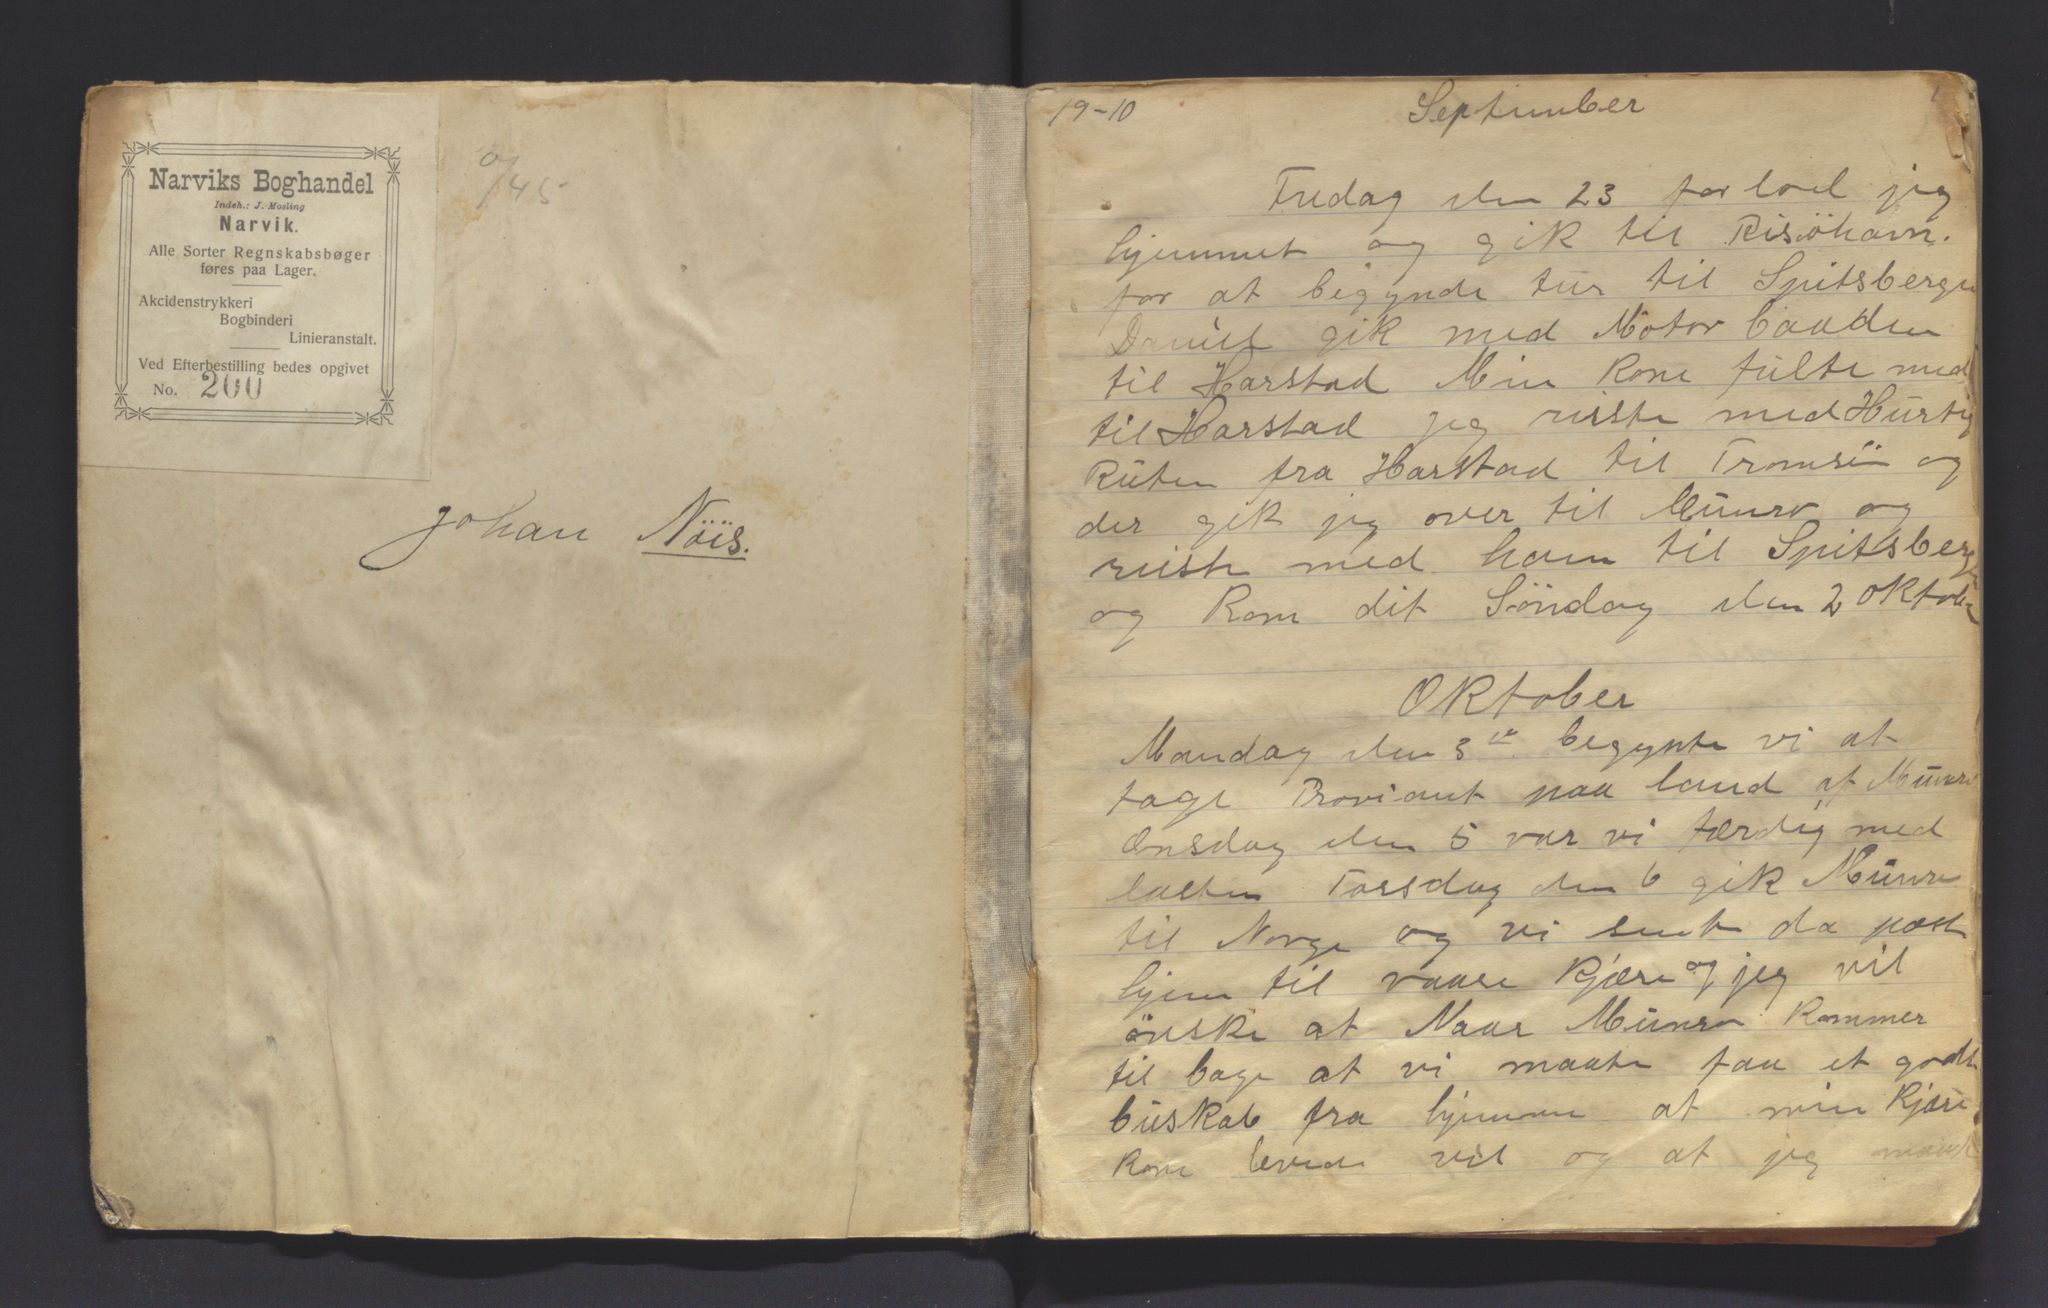 Narviks Boghandel
Indeh.: J. Mosling
Narvik.
Alle Sorter Regnskabsbøger
føres paa Lager.
Akcidenstrykkeri
Bogbinderi
Linieranstalt.
Ved Efterbestilling bedes opgivet
No. 200
0/45
Johan Nöis.
19-10 September 1
Fredag den 23 forlod jeg
hjemmet og gik til Risöhavn.
for at begynde tur til Spitsbergen
Daniel gik med Motor baaden
til Harstad Min Kone fulte med
til Harstad jeg reiste med Hurtig
Ruten fra Harstad til Tromsö og
der gik jeg over til Munro og
reiste med ham til Spitsbergen
og Kom dit Söndag den 2 Oktober
Oktober
Mandag den 3de begynte vi at
tage Proviant paa land af Munro
Onsdag den 5 var vi færdig med
lasten Torsdag den 6 gik Munro
til Norge og vi sent da post
hjem til vaare Kjære og jeg vil
önske at Naar Munro Kommer
til bage at vi maate faa et godt
buskab fra hjemme at min Kjære
Kone levede vel og at jeg maate